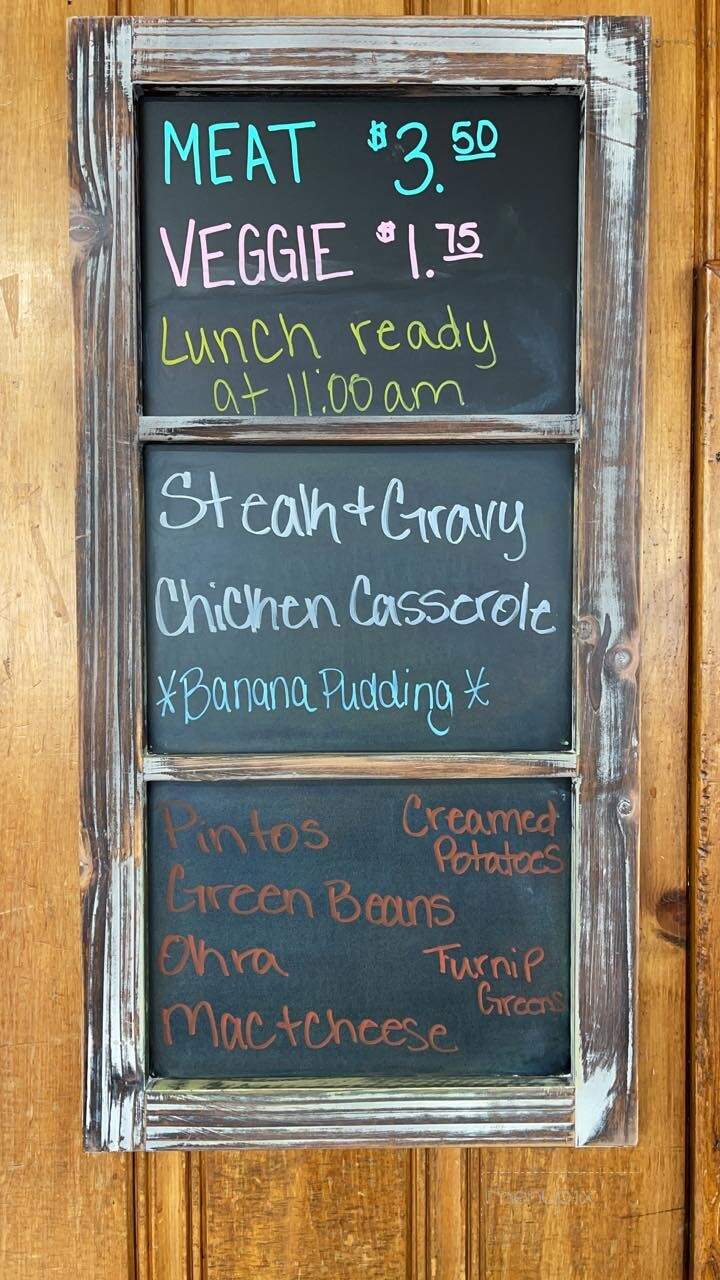 MEAT $3.50
VEGGIE $1.75
Lunch ready
at 11:00 am
Steak + Gravy
Chicken Casserole
*Banana Pudding*
Pintos
Creamed
Potatoes
Green Beans
Okra
Turnip
Greens
Mac + cheese
menupix